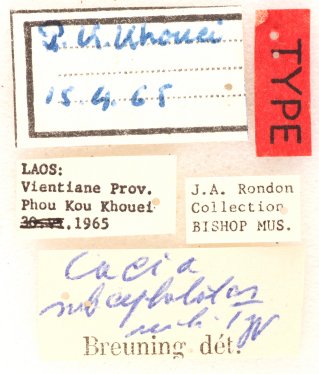 P. K. Khouei
15.4.65
TYPE
LAOS:
Vientiane Prov.
Phou Kou Khouei
1965
J.A. Rondon
Collection
BISHOP MUS.
Cacia
Breuning dét.